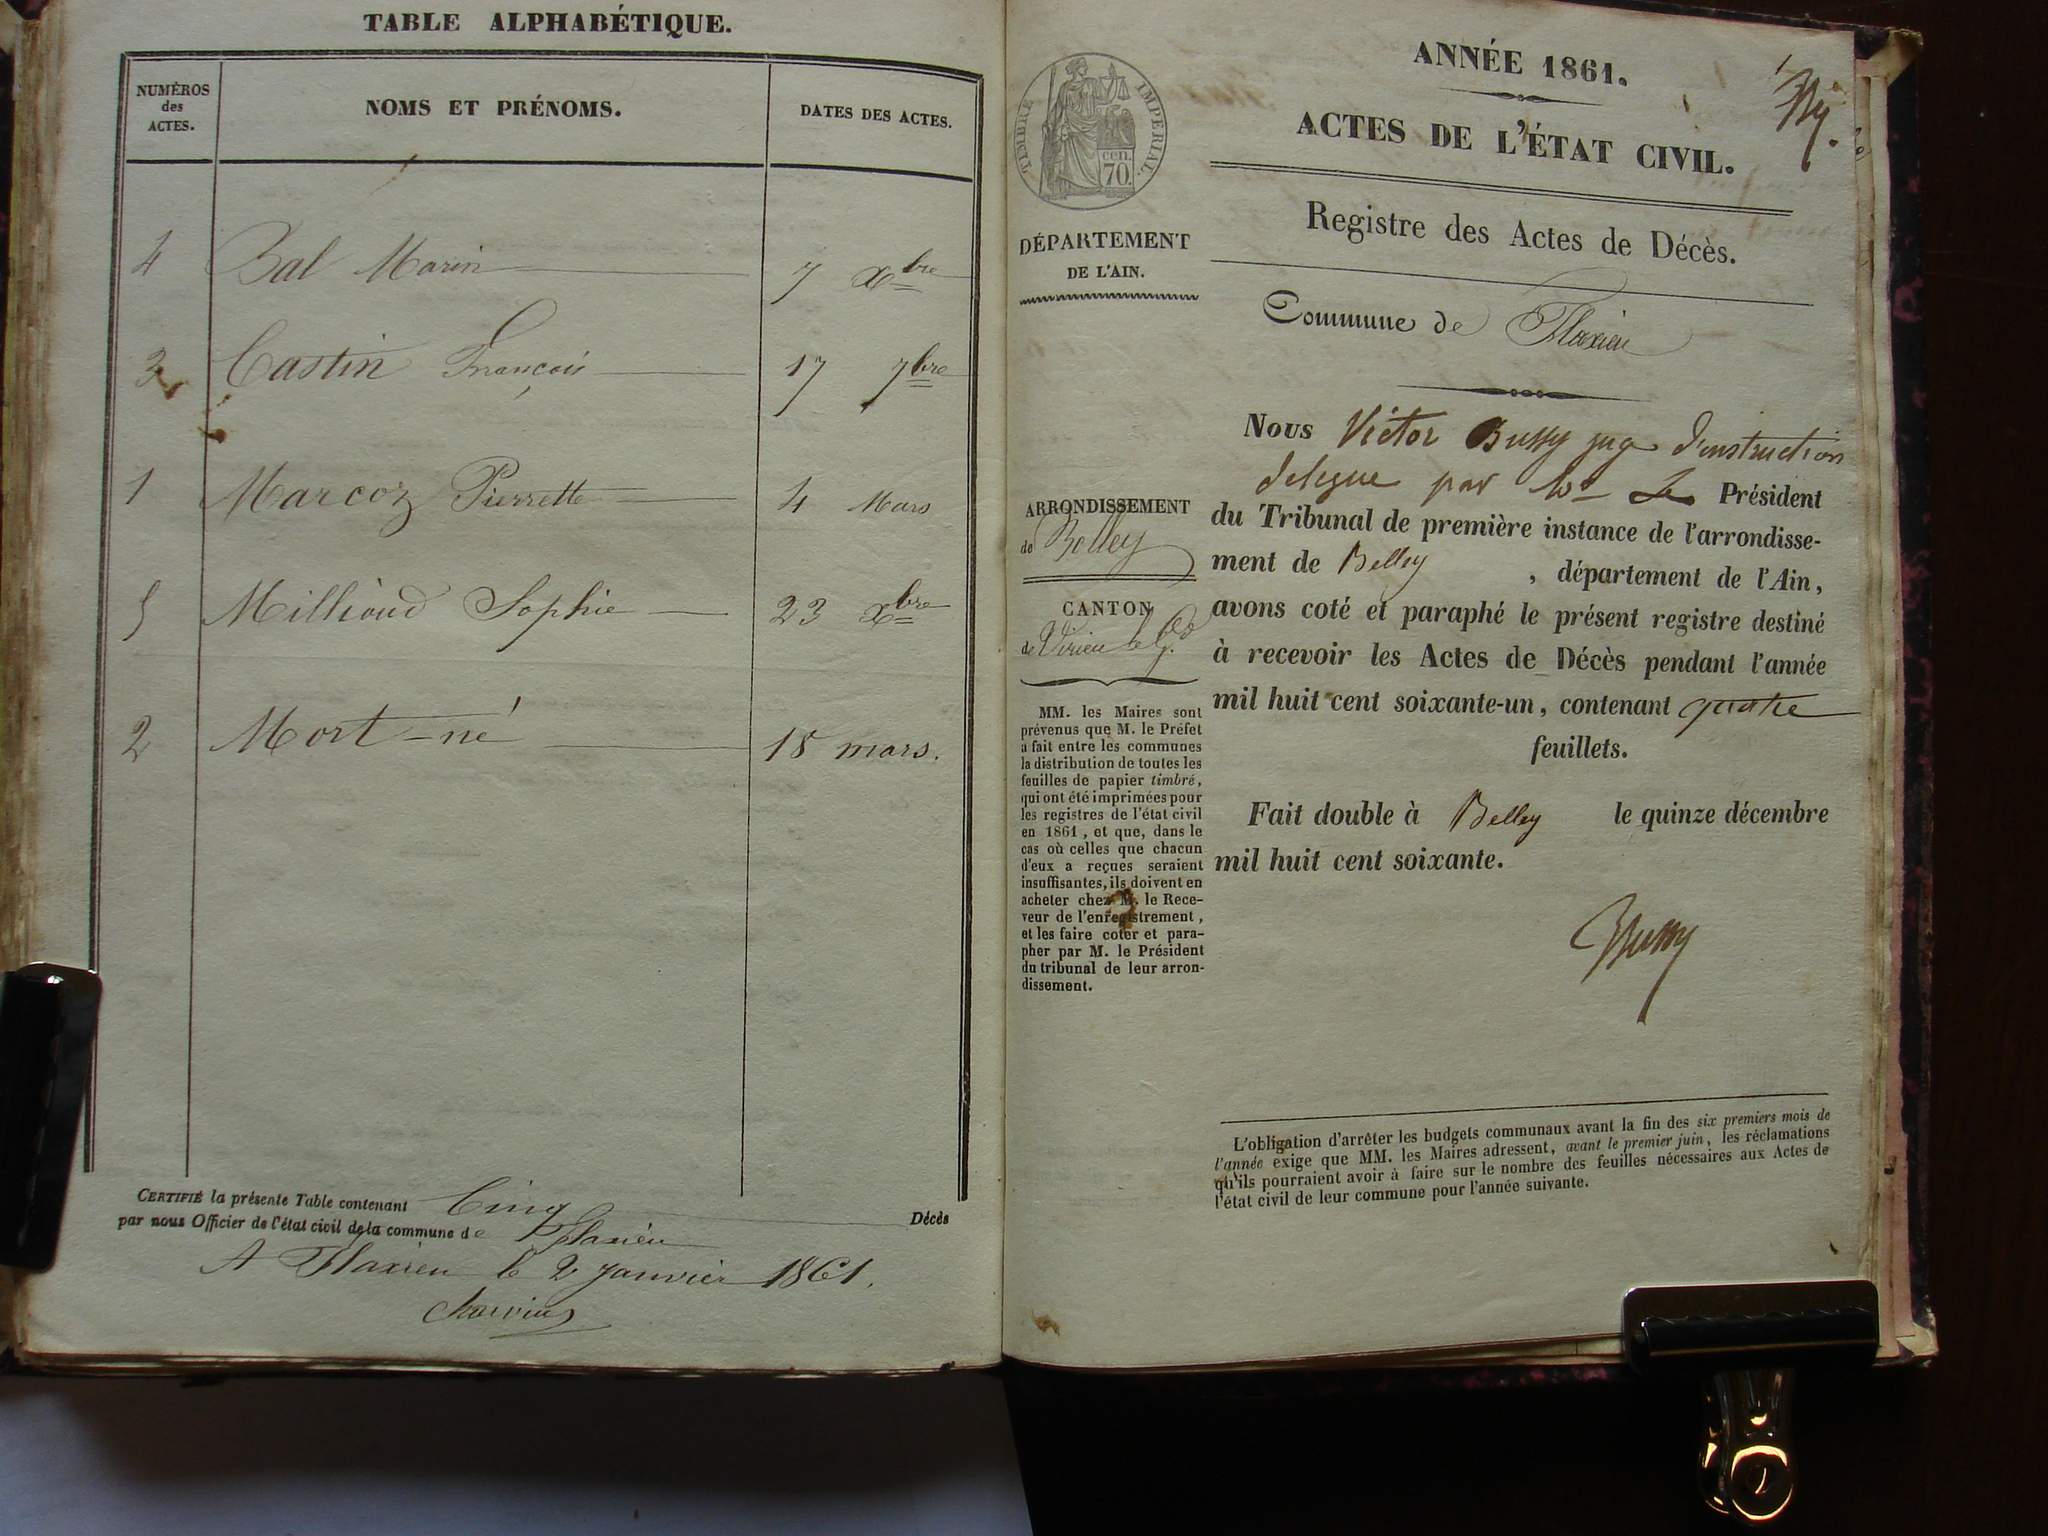 TABLE ALPHABÉTIQUE.
NUMÉROS des ACTES. NOMS ET PRÉNOMS. DATES DES ACTES.
4 Bal Marin 7 Xbre
3 Castin François 17 7bre
1 Marcoz Pierrette 4 Mars
5 Millioud Sophie 23 Xbre
2 Mort-né 15 mars.
CERTIFIÉ la présente Table contenant Cinq Décès
par nous Officier de l'état civil de la commune de Flaxieu
A Flaxieu le 2 janvier 1861.
TIMBRE IMPÉRIAL.
cen.
70.
DÉPARTEMENT
DE L'AIN.
ARRONDISSEMENT
de Belley
CANTON
de Virieu le Gd
MM. les Maires sont
prévenus que M. le Préfet
a fait entre les communes
la distribution de toutes les
feuilles de papier timbré,
qui ont été imprimées pour
les registres de l'état civil
en 1861, et que, dans le
cas où celles que chacun
d'eux a reçues seraient
insuffisantes, ils doivent en
acheter chez M. le Rece-
veur de l'enregistrement,
et les faire coter et para-
pher par M. le Président
du tribunal de leur arron-
dissement.
ANNÉE 1861.
ACTES DE L'ÉTAT CIVIL.
Registre des Actes de Décès.
Commune de Flaxieu
Nous Victor Bussy juge d'instruction
delegue par Le Président
du Tribunal de première instance de l'arrondisse-
ment de Belley, département de l'Ain,
avons coté et paraphé le présent registre destiné
à recevoir les Actes de Décès pendant l'année
mil huit cent soixante-un, contenant quatre
feuillets.
Fait double à Belley le quinze décembre
mil huit cent soixante.
Bussy
L'obligation d'arrêter les budgets communaux avant la fin des six premiers mois de
l'année exige que MM. les Maires adressent, avant le premier juin, les réclamations
qu'ils pourraient avoir à faire sur le nombre des feuilles nécessaires aux Actes de
l'état civil de leur commune pour l'année suivante.